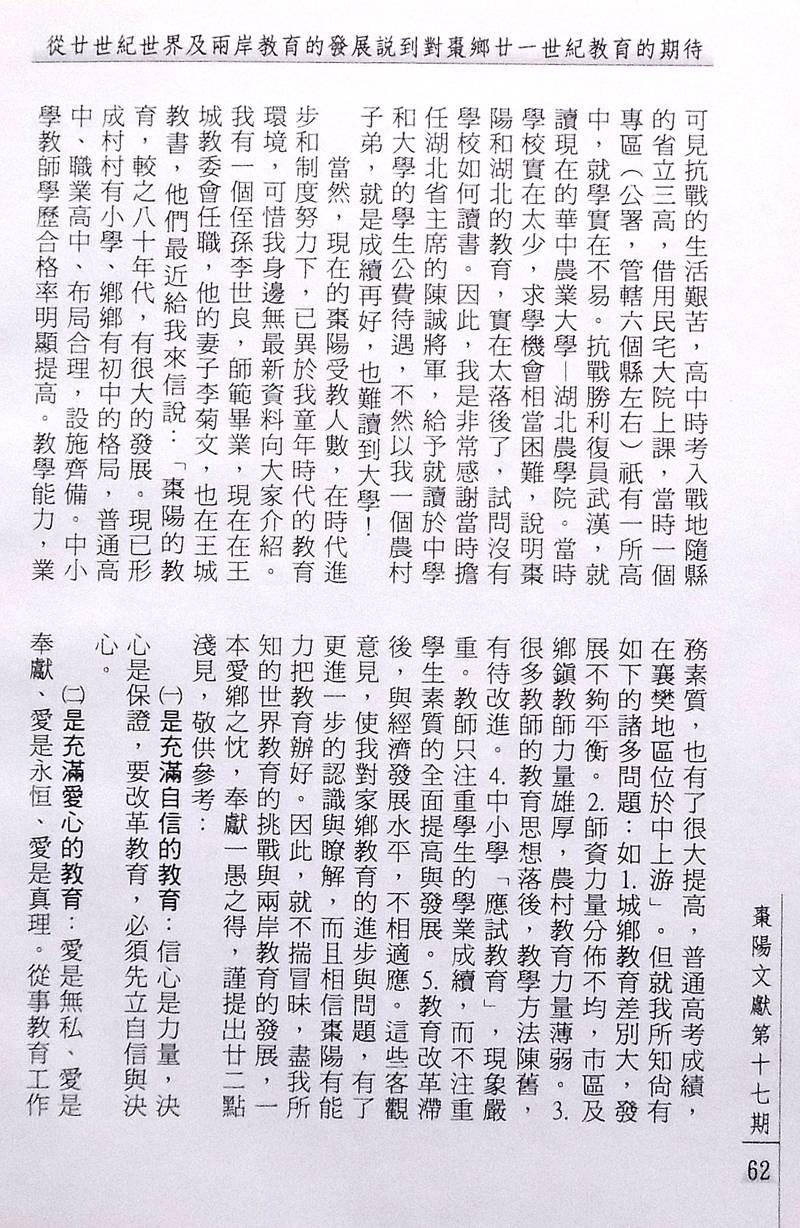 從廿世紀世界及兩岸教育的發展説到對棗鄉廿一世紀教育的期待
可見抗戰的生活艱苦，高中時考入戰地隨縣
的省立三高，借用民宅大院上課，當時一個
專區（公署，管轄六個縣左右）祇有一所高
中，就學實在不易。抗戰勝利復員武漢，就
讀現在的華中農業大學—湖北農學院。當時
學校實在太少，求學機會相當困難，說明棗
陽和湖北的教育，實在太落後了，試問沒有
學校如何讀書。因此，我是非常感謝當時擔
任湖北省主席的陳誠將軍，給予就讀於中學
和大學的學生公費待遇，不然以我一個農村
子弟，就是成績再好，也難讀到大學！
當然，現在的棗陽受教人數，在時代進
步和制度努力下，已異於我童年時代的教育
環境，可惜我身邊無最新資料向大家介紹。
我有一個侄孫李世良，師範畢業，現在在王
城教委會任職，他的妻子李菊文，也在王城
教書，他們最近給我來信說：「棗陽的教
育，較之八十年代，有很大的發展。現已形
成村村有小學、鄉鄉有初中的格局，普通高
中、職業高中、布局合理，設施齊備。中小
學教師學歷合格率明顯提高。教學能力，業
務素質，也有了很大提高，普通高考成績，
在襄樊地區位於中上游」。但就我所知尚有
如下的諸多問題：如1.城鄉教育差別大，發
展不夠平衡。2.師資力量分佈不均，市區及
鄉鎮教師力量雄厚，農村教育力量薄弱。3.
很多教師的教育思想落後，教學方法陳舊，
有待改進。4.中小學「應試教育」，現象嚴
重。教師只注重學生的學業成績，而不注重
學生素質的全面提高與發展。5.教育改革滯
後，與經濟發展水平，不相適應。這些客觀
意見，使我對家鄉教育的進步與問題，有了
更進一步的認識與瞭解，而且相信棗陽有能
力把教育辦好。因此，就不揣冒昧，盡我所
知的世界教育的挑戰與兩岸教育的發展，一
本愛鄉之忱，奉獻一愚之得，謹提出廿二點
淺見，敬供參考：
㈠是充滿自信的教育：信心是力量，決
心是保證，要改革教育，必須先立自信與決
心。
㈡是充滿愛心的教育：愛是無私、愛是
奉獻、愛是永恒、愛是真理。從事教育工作
棗陽文獻第十七期
62